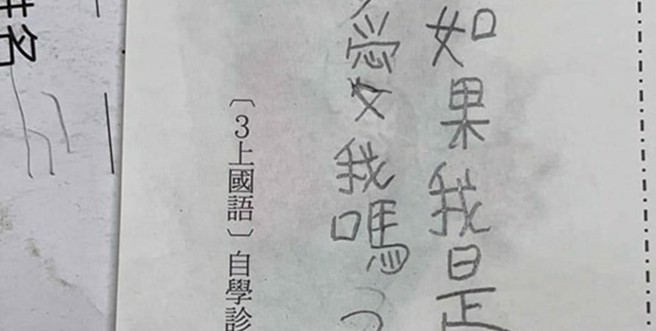 如果我是
愛我嗎?
〔3上國語〕自學診
姓名